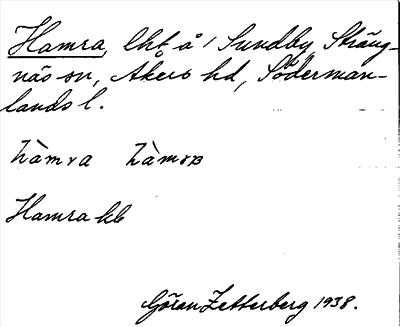 Hamra, lht å / Sundby, Sträng-
näs sn, Åkers hd, Söderman-
lands l.
hàmra hàmra
Hamra kb
Göran Zetterberg 1938.